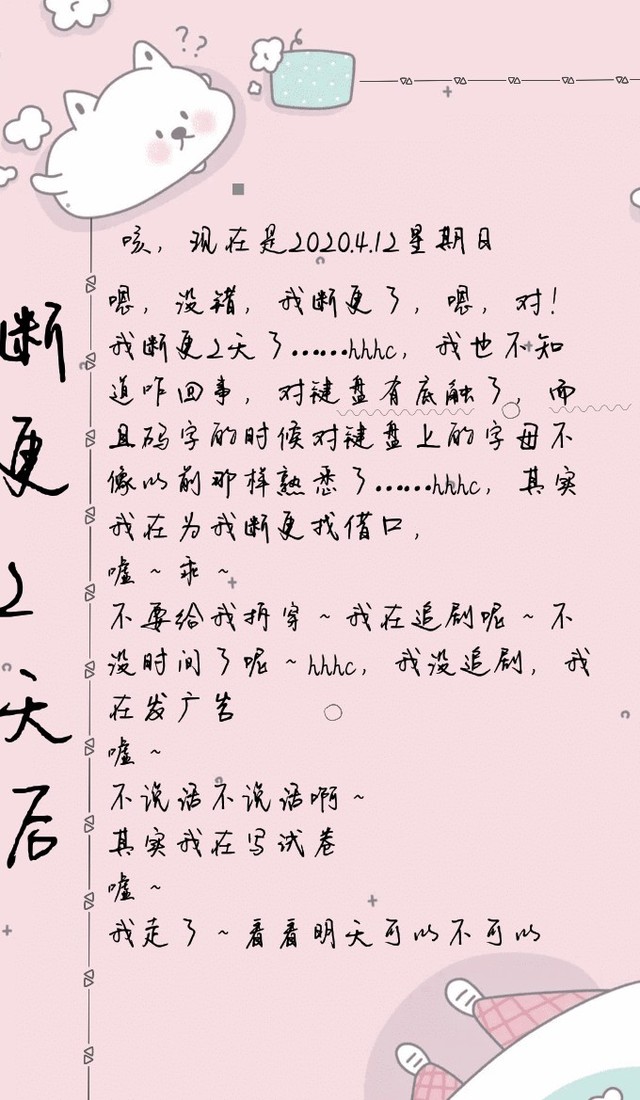 ??
断更2天后
咳，现在是2020.4.12星期日
嗯，没错，我断更了，嗯，对！
我断更2天了……hhhc，我也不知
道咋回事，对键盘有底触了，而
且码字的时候对键盘上的字母不
像以前那样熟悉了……hhhc，其实
我在为我断更找借口，
嘘~乖~
不要给我拆穿~我在追剧呢~不
没时间了呢~hhhc，我没追剧，我
在发广告
嘘~
不说话不说话啊~
其实我在写试卷
嘘~
我走了~看看明天可以不可以